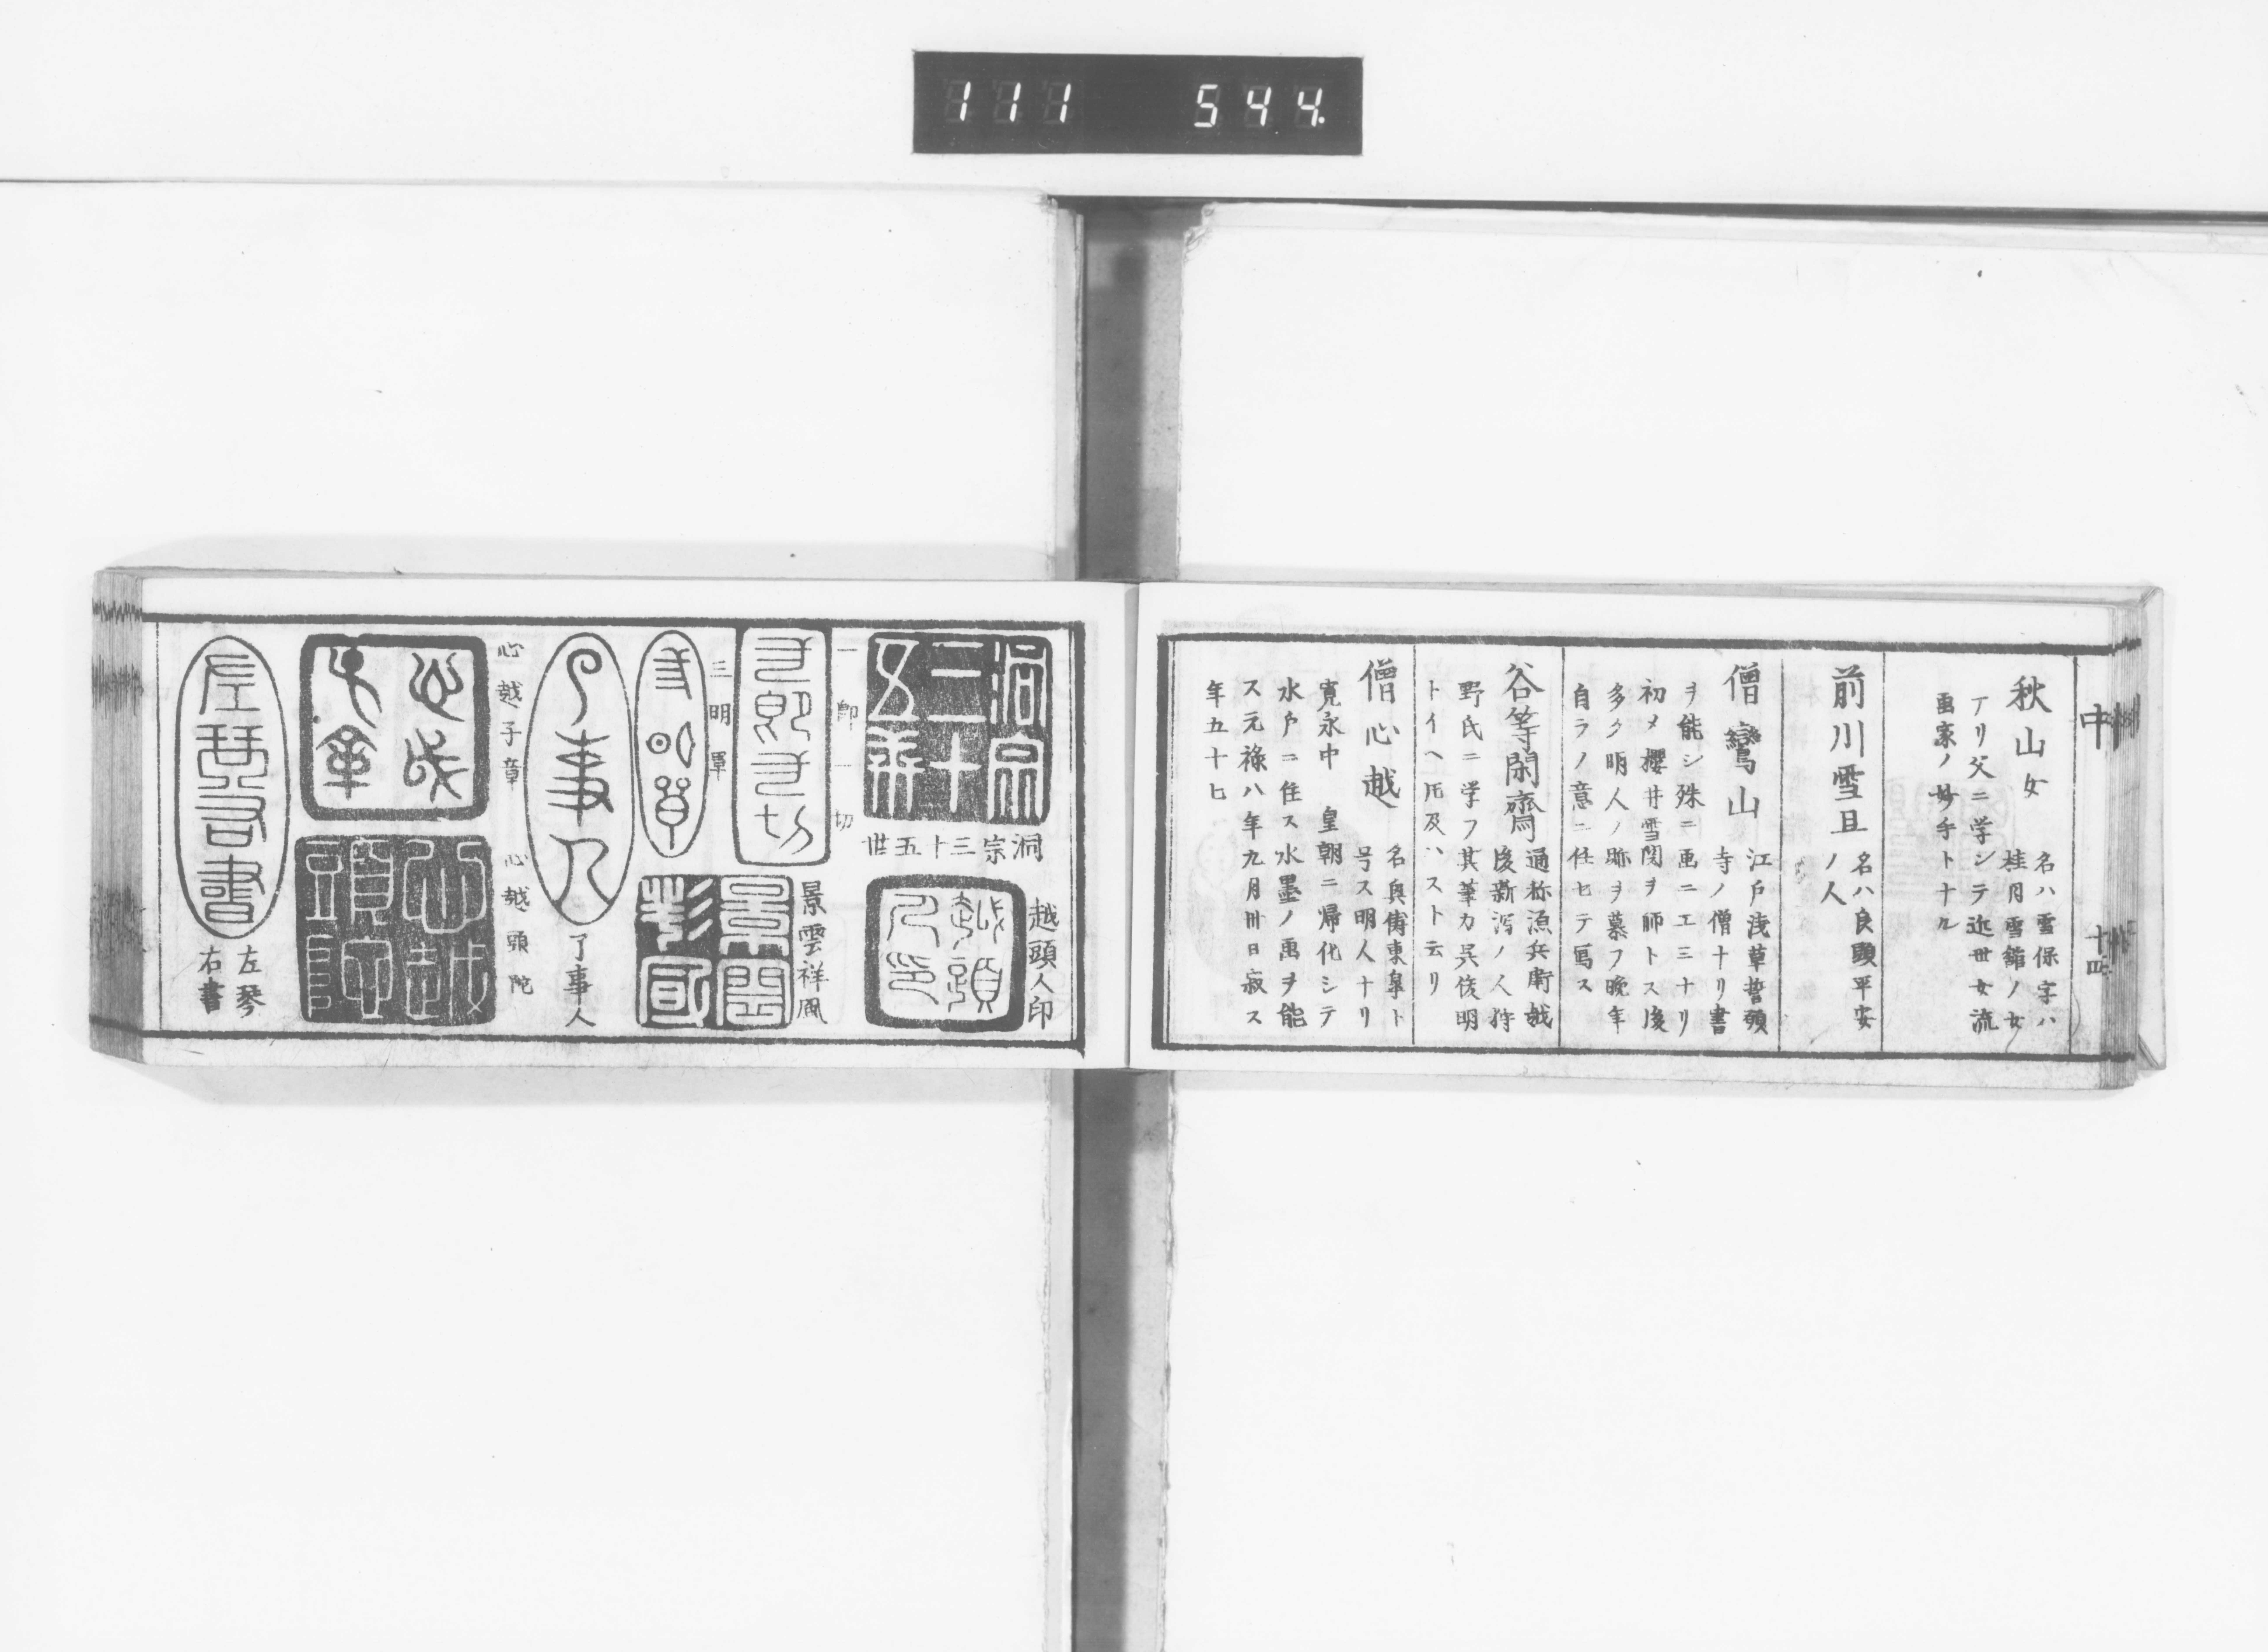 111 544.
中
十四
秋山女 名ハ雪保字ハ
桂月雪館ノ女
アリ父ニ学シテ近世女流
画家ノ妙手トナル
前川雪旦 名ハ良顕平安
ノ人
僧鸞山 江戸浅草誓願
寺ノ僧ナリ書
ヲ能シ殊ニ画ニ工ミナリ
初メ櫻井雪関ヲ師トス後
多ク明人ノ跡ヲ慕フ晩年
自ラノ意ニ任セテ冩ス
谷等閑齋 通称源兵衛越
後新泻ノ人狩
野氏ニ学フ其筆力呉俊明
トイヘ𪜈及ハスト云リ
僧心越 名興儔東皐ト
号ス明人ナリ
寛永中 皇朝ニ帰化シテ
水戸ニ住ス水墨ノ畫ヲ能
ス元禄八年九月卅日寂ス
年五十七
洞宗三十五世
越頭人印
一即一切
景雲祥風
三明
了事人
心越子章
心越頭陀
左琴
右書